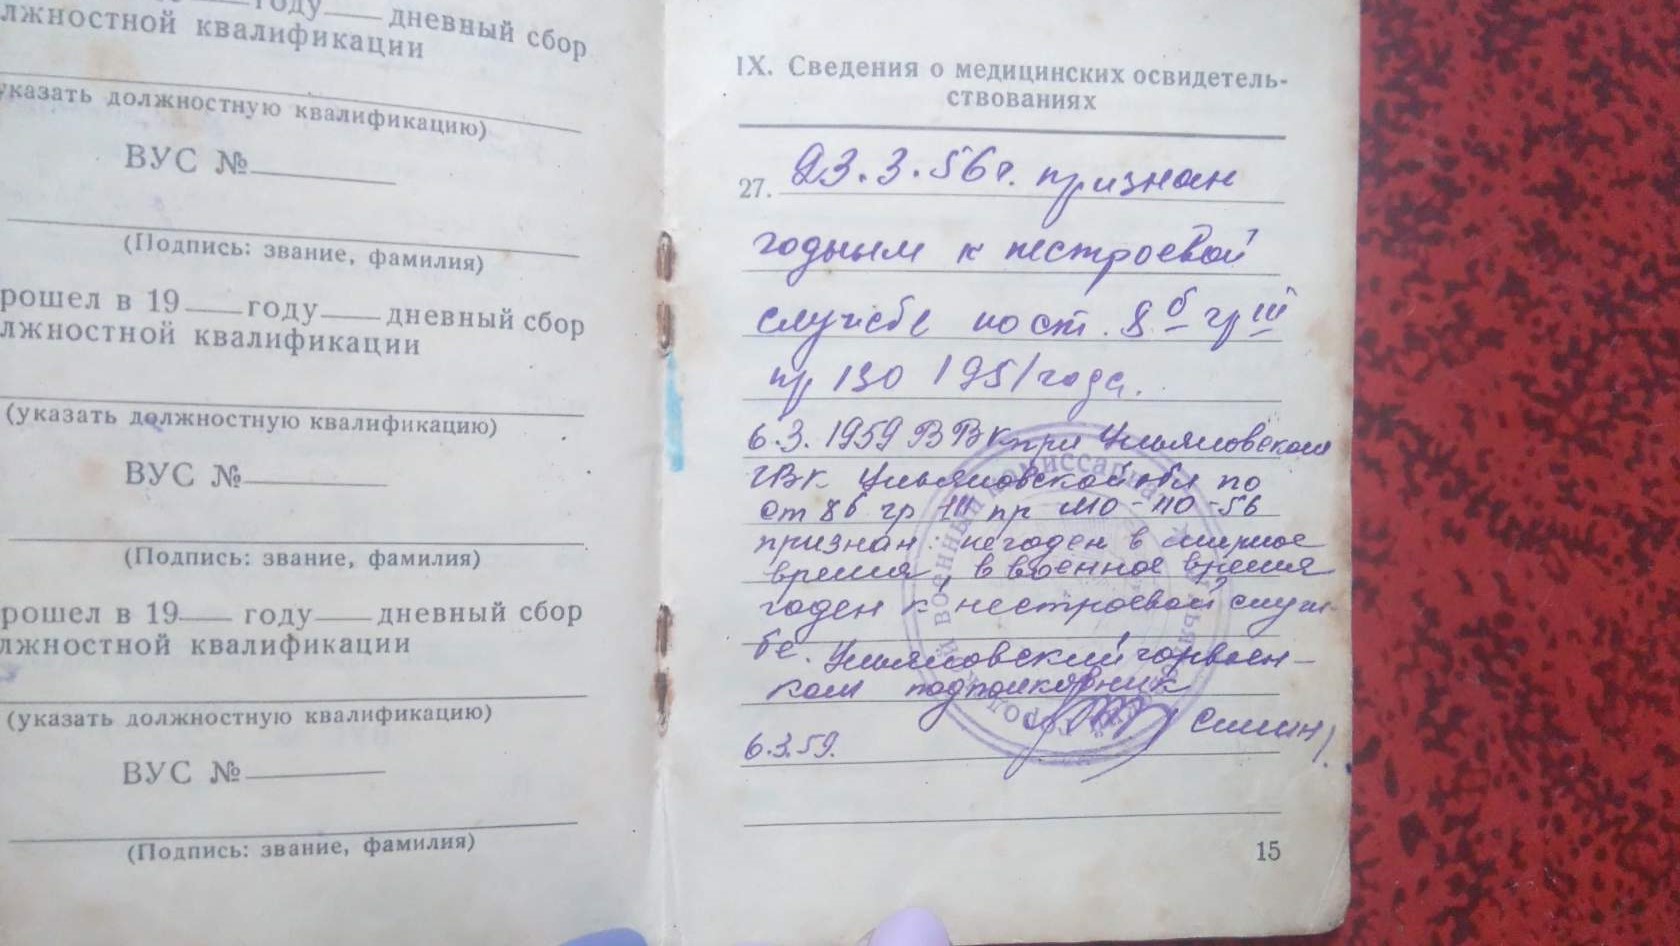 году дневный сбор
лжностной квалификации
указать должностную квалификацию)
ВУС №
(Подпись: звание, фамилия)
рошел в 19 году дневный сбор
лжностной квалификации
(указать должностную квалификацию)
ВУС №
(Подпись: звание, фамилия)
рошел в 19 году дневный сбор
лжностной квалификации
(указать должностную квалификацию)
ВУС №
(Подпись: звание, фамилия)
IX. Сведения о медицинских освидетель-
ствованиях
27. 23.3.56г. признан
годным к нестроевой
службе по ст. 8б гр III
пр 130 1951 года.
6.3.1959 ВВК при Ульяновском
ГВК Ульяновской обл по
ст 8б гр III пр МО-110-56
признан: негоден в мирное
время, в военное время
годен к нестроевой служ-
бе. Ульяновский горвоен-
ком подполковник
6.3.59.
15